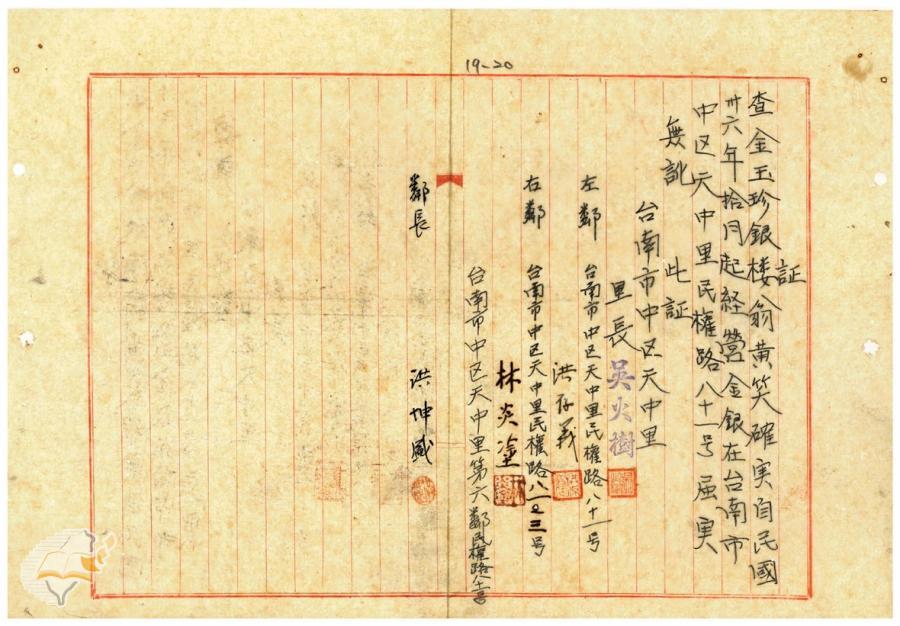 19-20
証
查金玉珍銀楼翁黄笑確実自民國
卅六年拾月起経營金銀在台南市
中区天中里民權路八十一号属実
無訛　此証
台南市中区天中里
里長　吳火樹
左鄰　台南市中区天中里民權路八十一号
洪存義
右鄰　台南市中区天中里民權路八一之三号
林炎塗
台南市中区天中里第六鄰民權路八十号
鄰長　洪坤盛